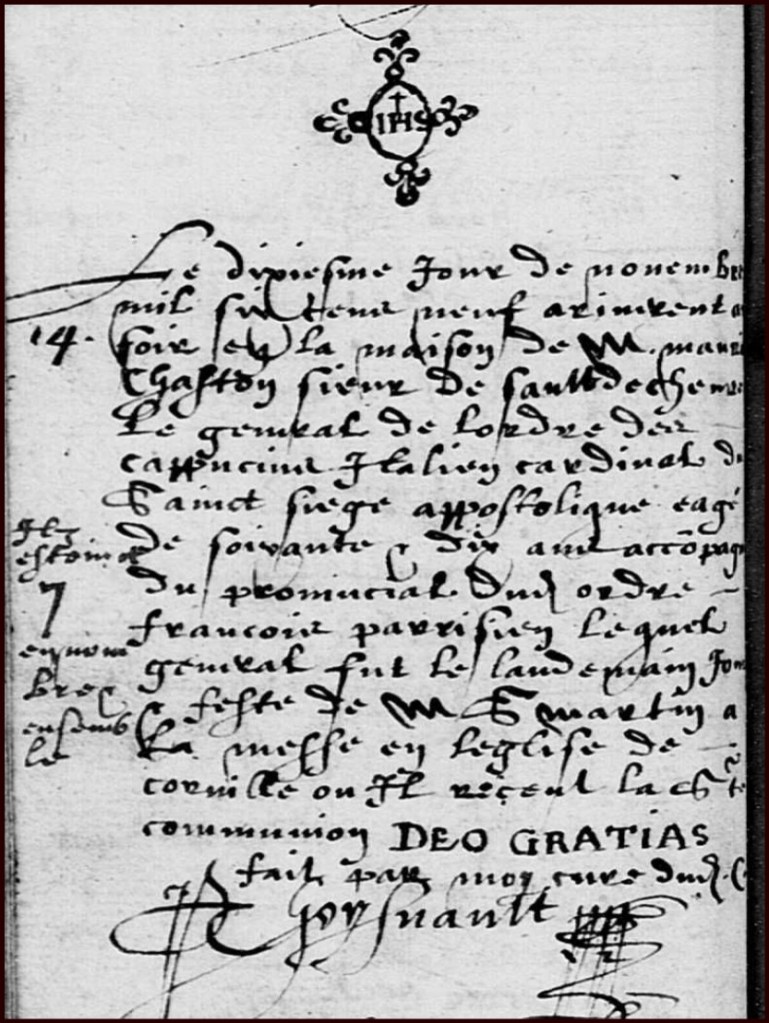 IHS
Le dixiesme Jour de novembre
mil six cens neuf ariverent a
14.
soir en la maison de M. mauri
Chaston sieur de
Le general de lordre des
cappucins Italien cardinal du
Sainct siege appostolique eagé
de soixante & dix ans accõpag
du provincial dud ordre
francois parrisien lequel
general fut le landemain Jour
& feste de M S martin a
La messe en leglise de
corville ou Il reçeut la Ste
communion DEO GRATIAS
fait par moy cure dud. C
poysnault
Ilz
estoient
7
en nom
bre
ensemb
le